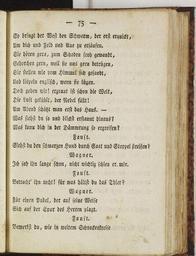 — 75 —
So bringt der West den Schwarm, der erst erquickt,
Um dich und Feld und Aue zu ersäufen.
Sie hören gern, zum Schaden froh gewandt,
Gehorchen gern, weil sie uns gern betrügen,
Sie stellen wie vom Himmel sich gesandt,
Und lispeln englisch, wenn sie lügen.
Doch gehen wir! ergraut ist schon die Welt,
Die Luft gekühlt, der Nebel fällt!
Am Abend schätzt man erst das Haus. —
Was stehst du so und blickst erstaunt hinaus?
Was kann dich in der Dämmrung so ergreifen?
Faust.
Siehst du den schwarzen Hund durch Saat und Stoppel streifen?
Wagner.
Ich sah ihn lange schon, nicht wichtig schien er mir.
Faust.
Betracht' ihn recht! für was hältst du das Thier?
Wagner.
Für einen Pudel, der auf seine Weise
Sich auf der Spur des Herren plagt.
Faust.
Bemerkst du, wie in weitem Schneckenkreise